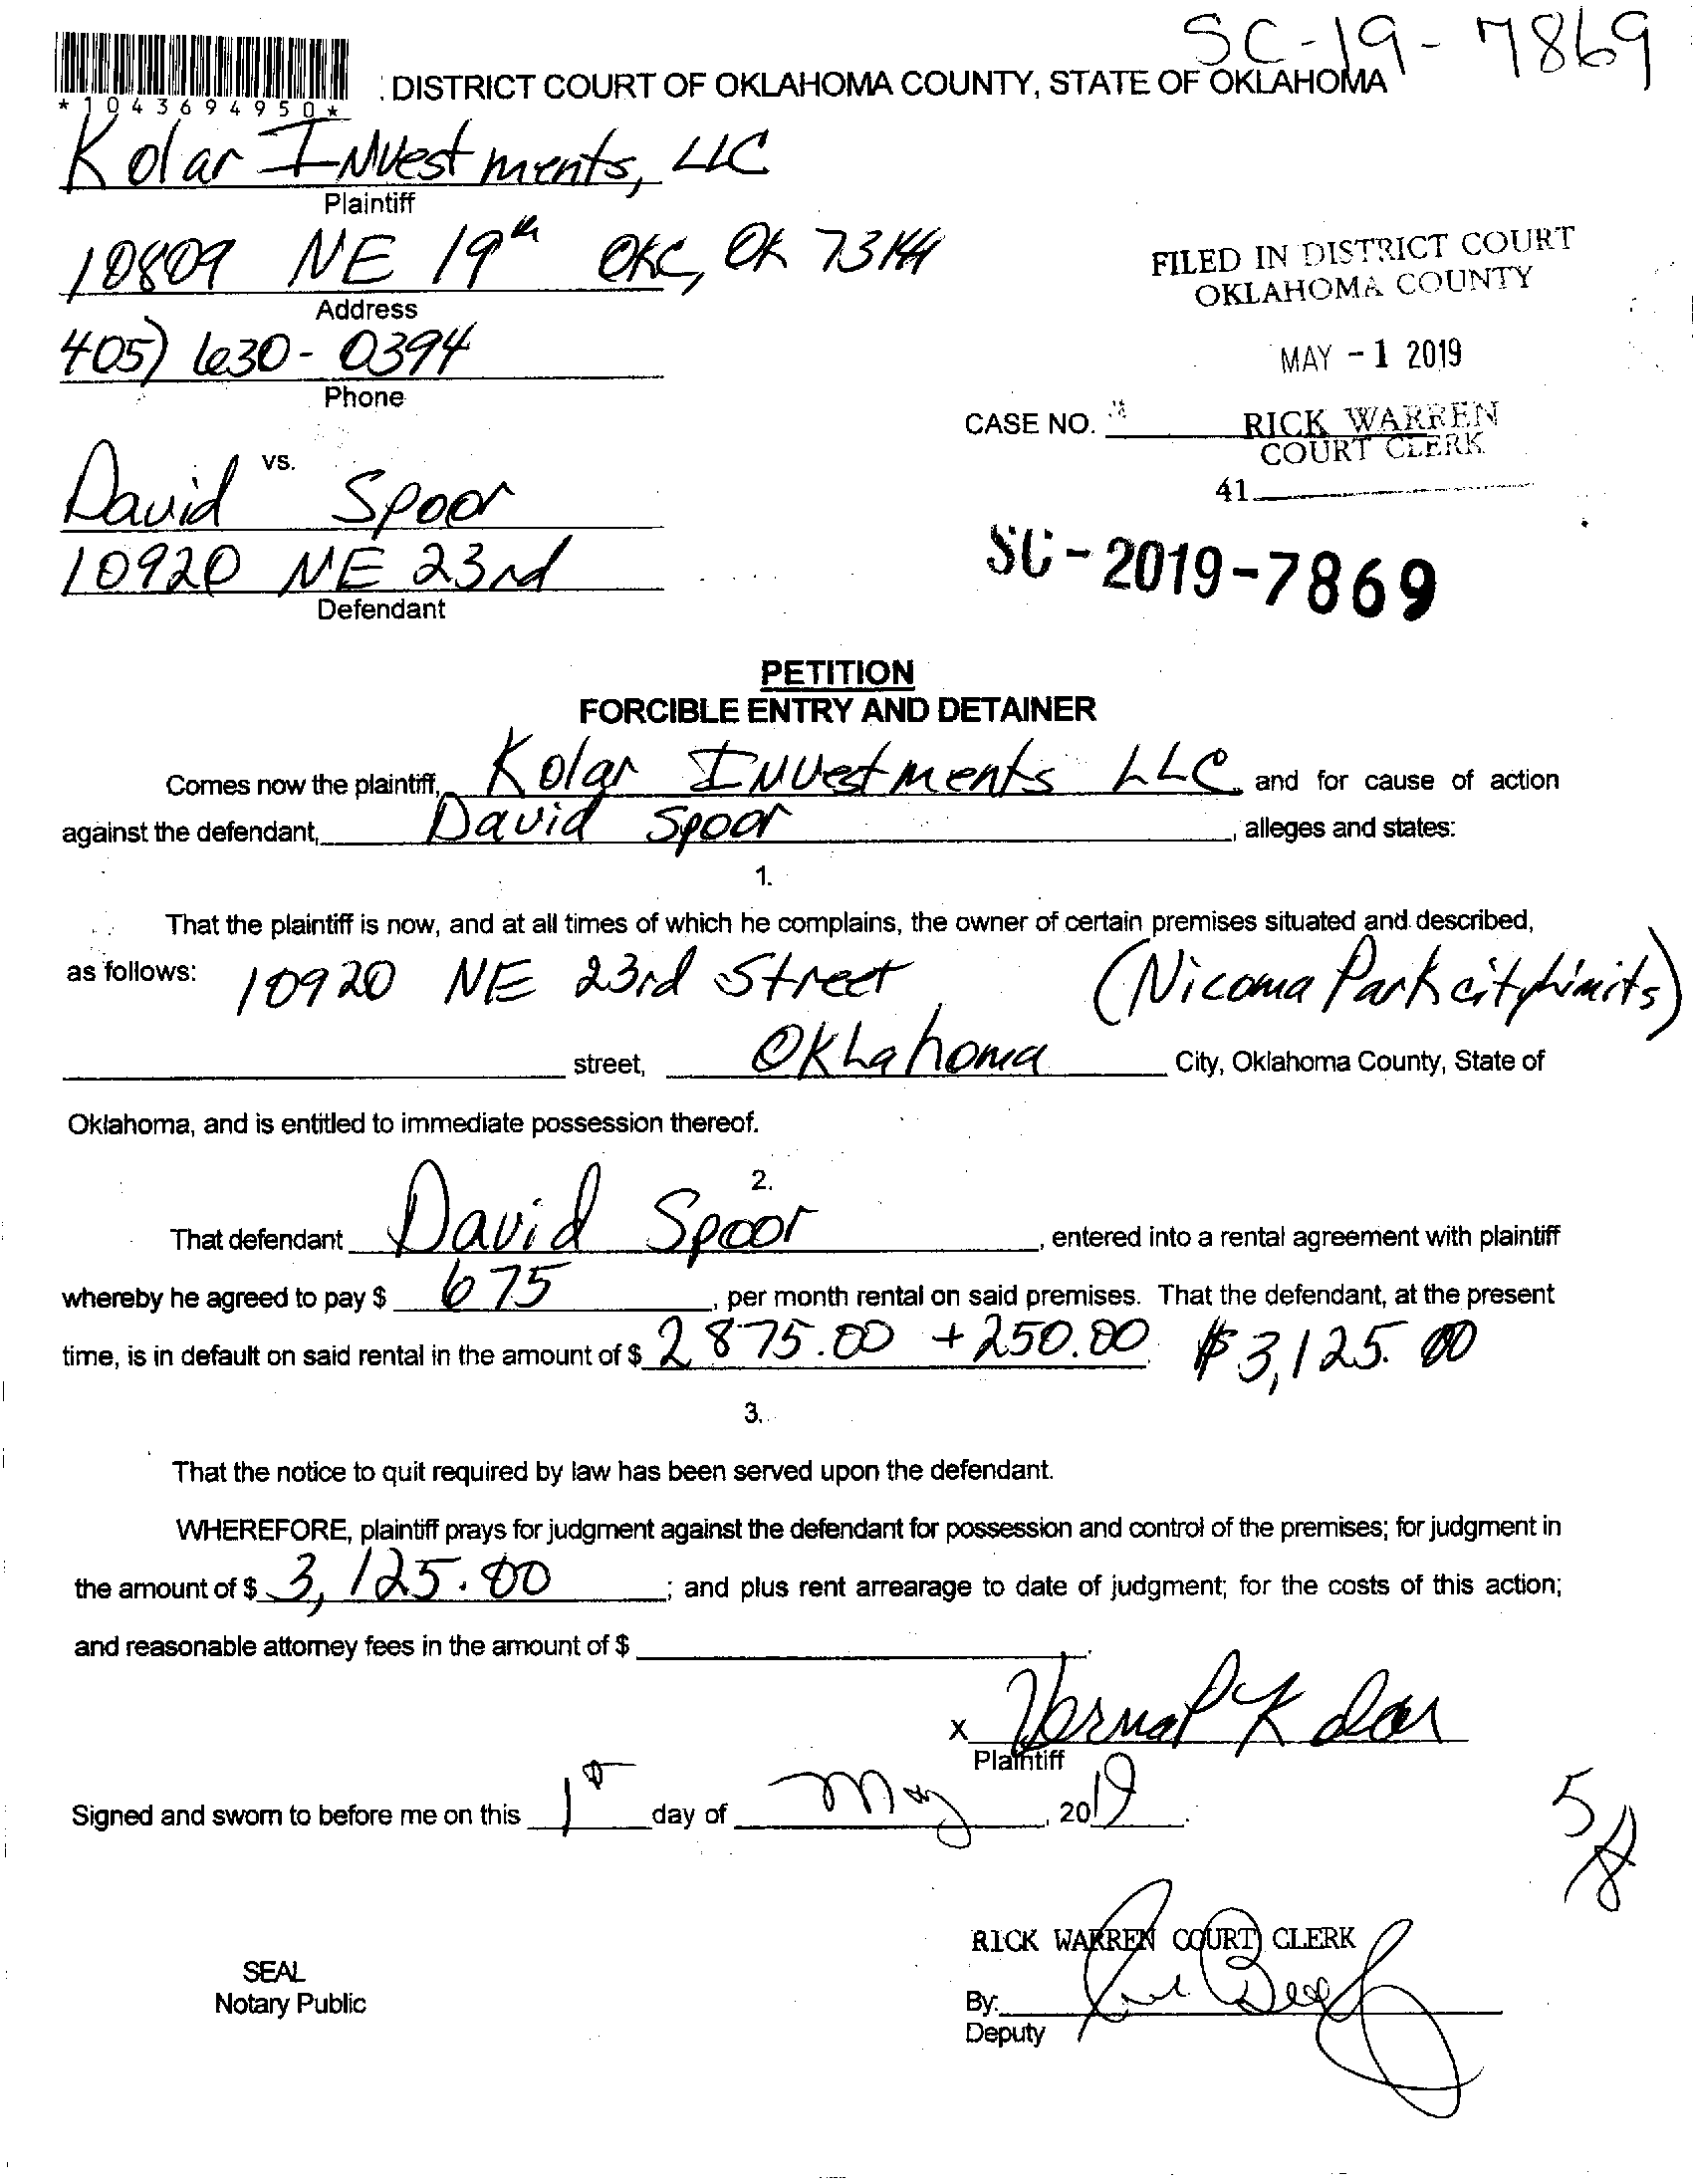 SC-19-7869
*1043694950*
: DISTRICT COURT OF OKLAHOMA COUNTY, STATE OF OKLAHOMA
Kolar Investments, LLC
Plaintiff
10809 NE 19th OKC, OK 73141
Address
405) 630-0394
Phone
FILED IN DISTRICT COURT
OKLAHOMA COUNTY
MAY -1 2019
CASE NO.
RICK WARREN
COURT CLERK
41
vs.
David Spoor
10920 NE 23rd
Defendant
SC-2019-7869
PETITION
FORCIBLE ENTRY AND DETAINER
Comes now the plaintiff, Kolar Investments LLC, and for cause of action
against the defendant, David Spoor, alleges and states:
1.
That the plaintiff is now, and at all times of which he complains, the owner of certain premises situated and described,
as follows: 10920 NE 23rd Street (Nicoma Park city limits)
street, Oklahoma City, Oklahoma County, State of
Oklahoma, and is entitled to immediate possession thereof.
2.
That defendant David Spoor, entered into a rental agreement with plaintiff
whereby he agreed to pay $ 675, per month rental on said premises. That the defendant, at the present
time, is in default on said rental in the amount of $ 2875.00 + 250.00. $3,125.00
3.
That the notice to quit required by law has been served upon the defendant.
WHEREFORE, plaintiff prays for judgment against the defendant for possession and control of the premises; for judgment in
the amount of $ 3,125.00; and plus rent arrearage to date of judgment; for the costs of this action;
and reasonable attorney fees in the amount of $
X Verna P Kolar
Plaintiff
Signed and sworn to before me on this 1st day of May, 2019.
5/8
RICK WARREN COURT CLERK
SEAL
Notary Public
By:
Deputy